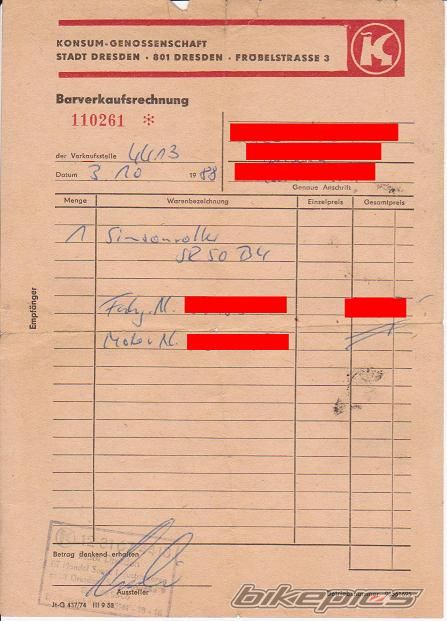 KONSUM-GENOSSENSCHAFT
STADT DRESDEN · 801 DRESDEN · FRÖBELSTRASSE 3
K
Barverkaufsrechnung
110261 *
der Verkaufsstelle 4413
Datum 3. 10 1988
Genaue Anschrift
Menge Warenbezeichnung Einzelpreis Gesamtpreis
1 Simsonroller
SR 50 B4
Empfänger
Fahrg. Nr.
Motor Nr.
Betrag dankend erhalten
Aussteller
Jt-G 437/74 III 9 58
Betriebsnummer
bikepics